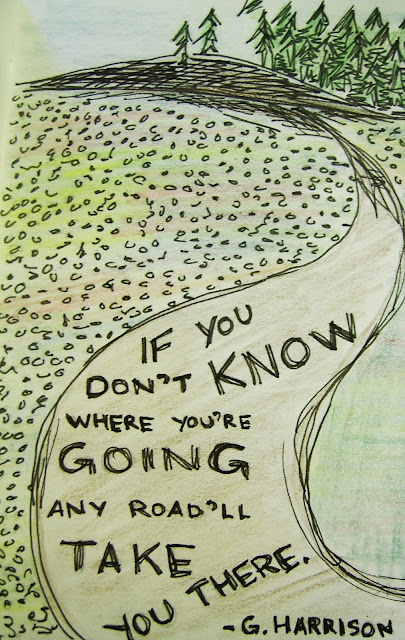 IF YOU
DON'T KNOW
WHERE YOU'RE
GOING
ANY ROAD'LL
TAKE
YOU THERE.
- G. HARRISON